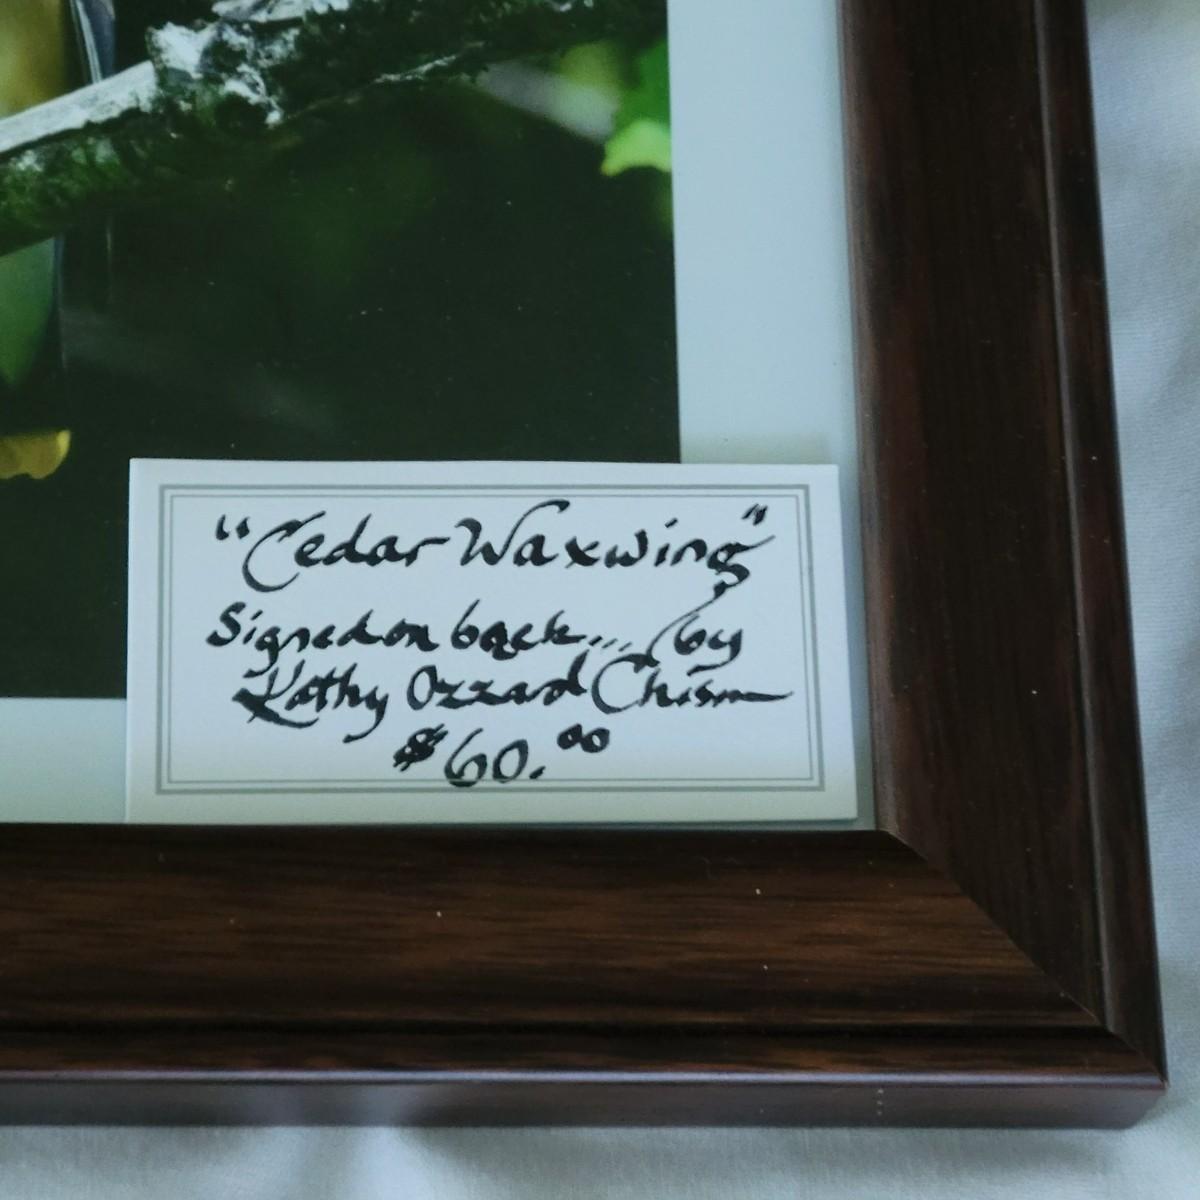 "Cedar Waxwing"
Signed on back... by
Kathy Ozzard Chism
$60.00